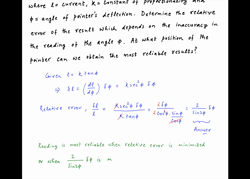 where I = current, k = constant of proportionality and
φ = angle of pointer's deflection. Determine the relative
error of the result which depends on the inaccuracy in
the reading of the angle φ. At what position of the
pointer can we obtain the most reliable results?
Given I = k tanφ
⇒ δI = (dI/dφ) δφ = k sec²φ δφ
Relative error = δI/I = k sec²φ δφ / k tanφ = 2δφ / 2cos²φ sinφ/cosφ = 2/sin2φ δφ
Answer
Reading is most reliable when relative error is minimized
or when 2/sin2φ δφ is m